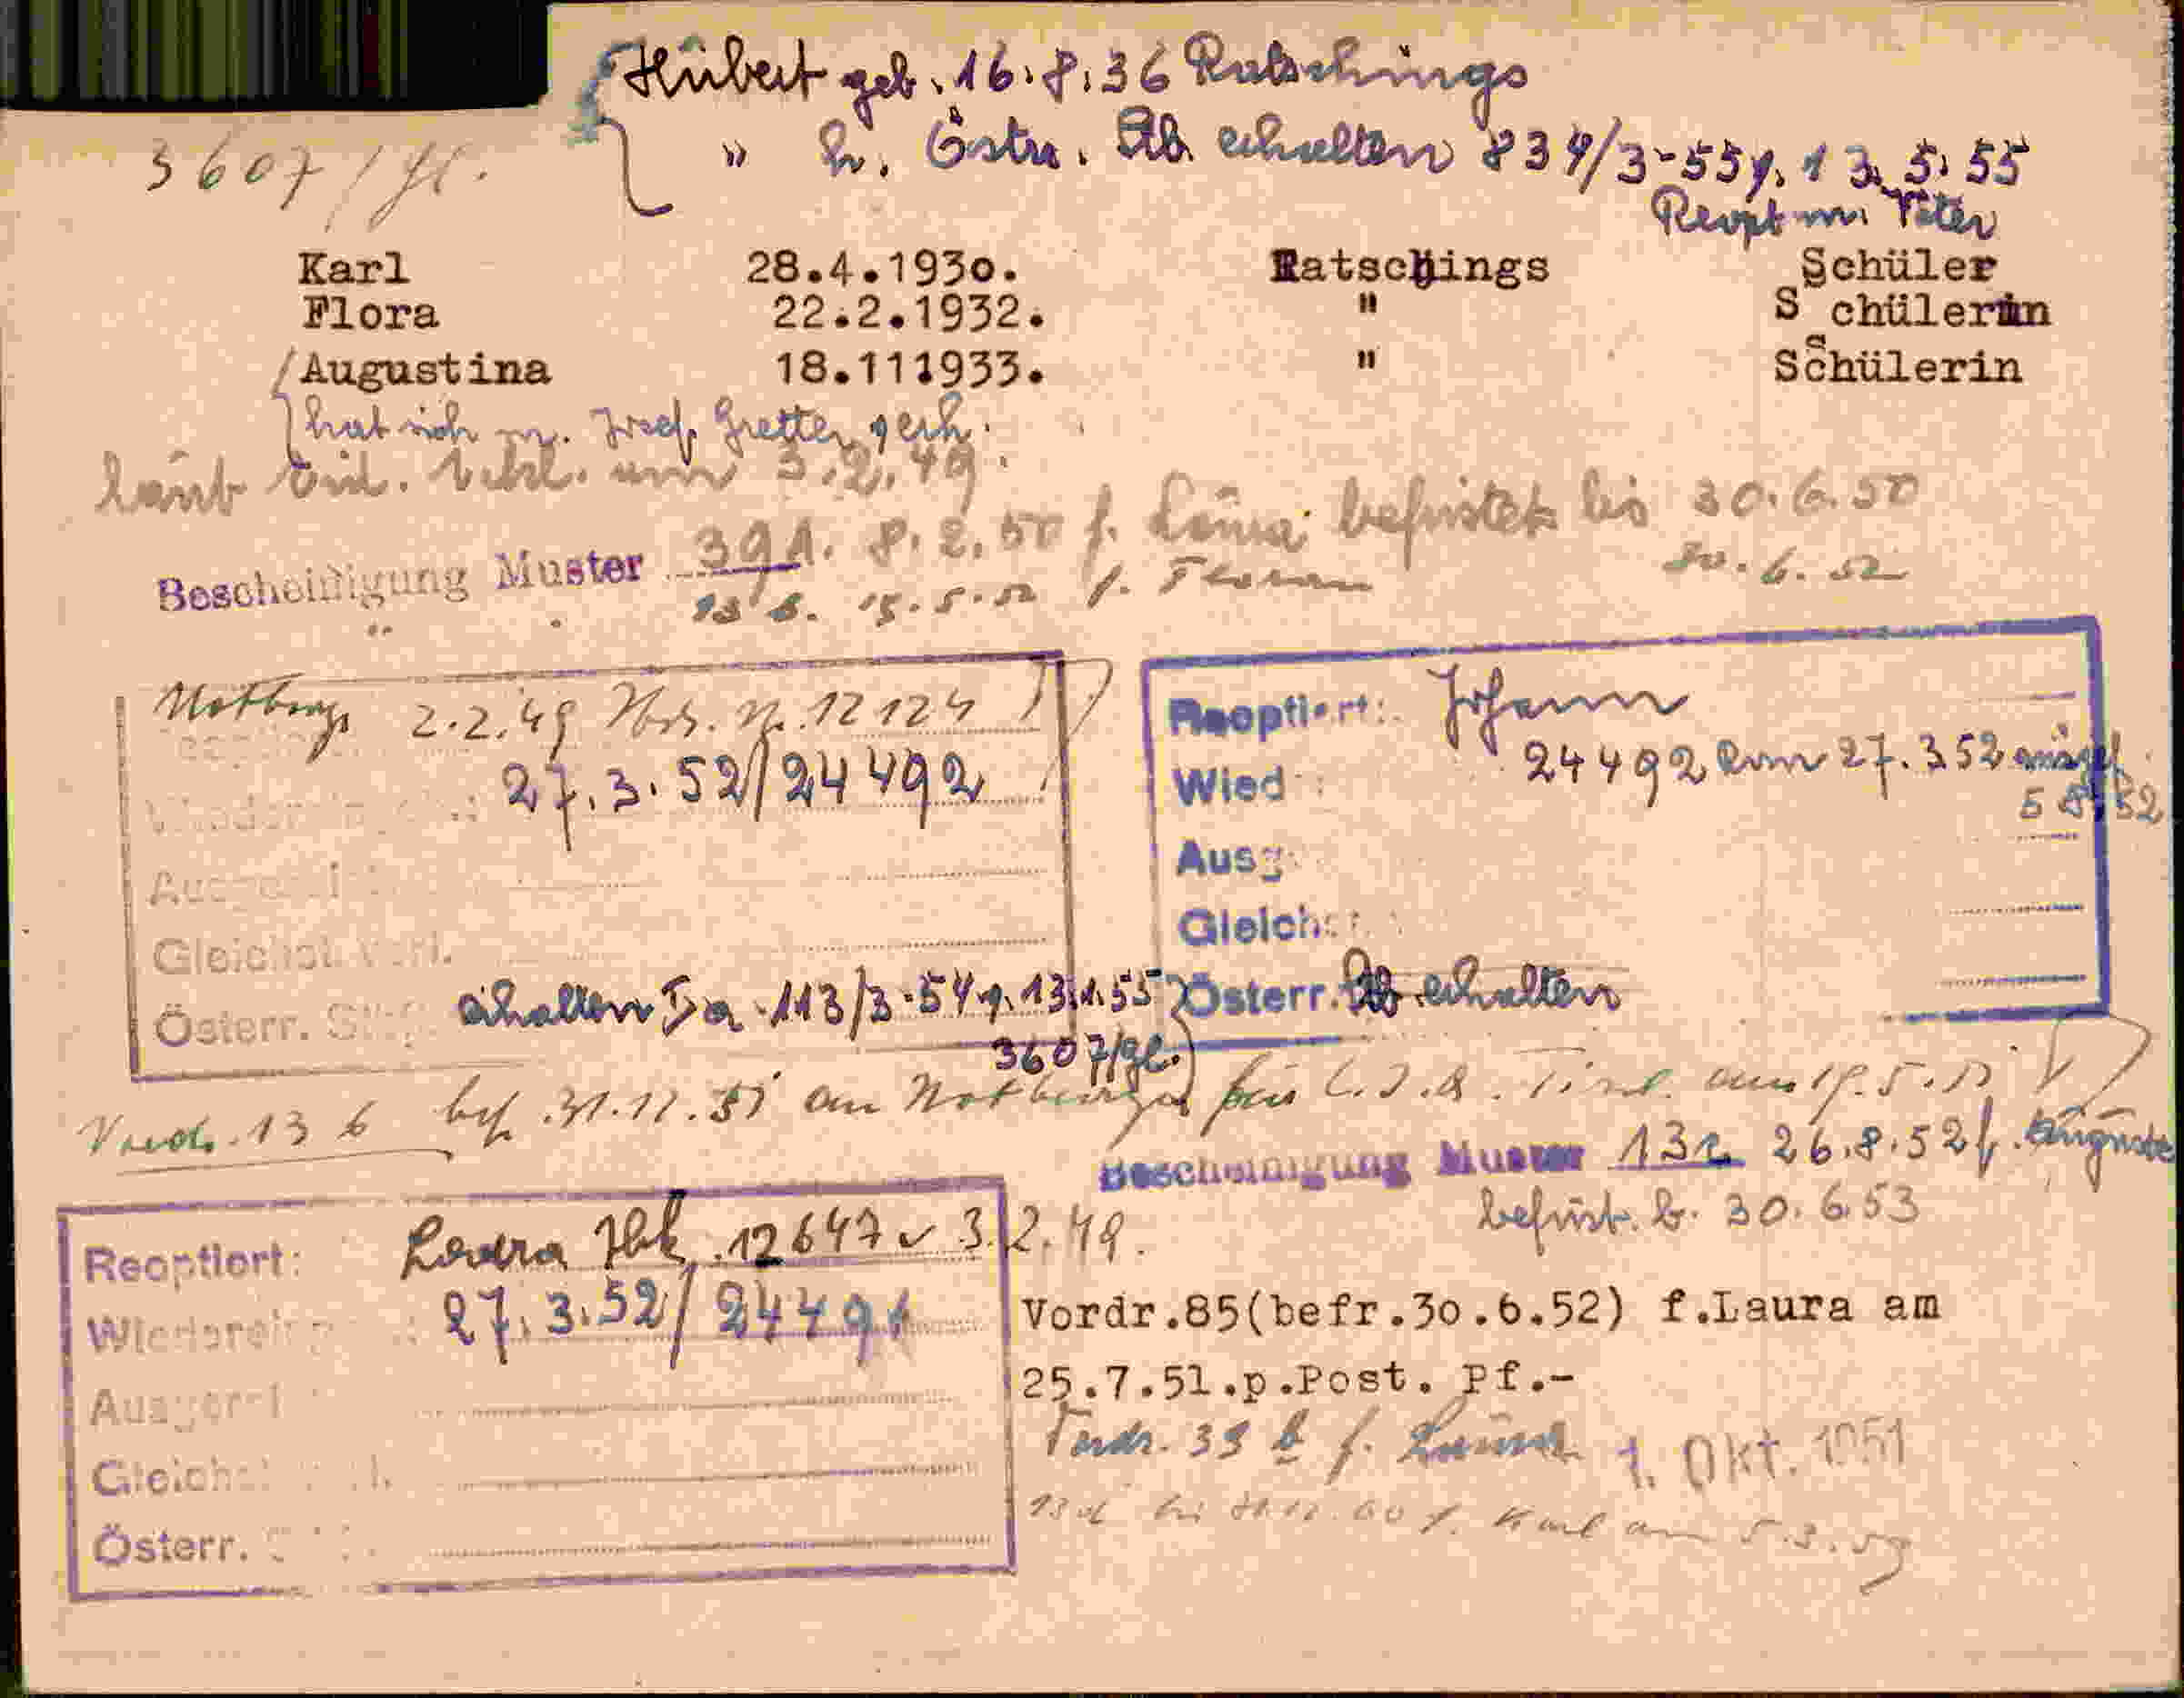 Hubert geb. 16.8.36 Ratschings
" h. Östr. Stb erhalten 834/3-55 v. 13.5.55
3607/gl.
Reopt m. Vater
Karl 28.4.1930. Ratschings Schüler
Flora 22.2.1932. " Schülerin
Augustina 18.111933. " Schülerin
hat sich m. Josef Gretter verh.
laut 3.2.49.
Bescheinigung Muster 39A. 8.2.50 f. Laura befristet bis 30.6.50
" 13 b. 15.5.52 f. 30.6.52
Notburga 2.2.49 Nr. 12124
27.3.52/24492
Gleichst. Verl.
Österr. erhalten Ia-113/3-54 v. 13.1.55
3607/gl.
Reoptiert: Johann
24492 vom 27.3.52
5 8 52
Wied
Ausg
Gleichst
Österr. Stb erhalten
Vordr. 13 b bef. 31.12.51 an Notburga für Tirol am 19.5.51
Bescheinigung Muster 132 26.8.52 f. Auguste
befrist. b. 30.6.53
Reoptiert: Laura 12647 v 3.2.49.
27.3.52/24491
Gleichst
Österr.
Vordr.85(befr.30.6.52) f.Laura am
25.7.51.p.Post. Pf.-
Vordr. 39 b f. Laura 1. Okt. 1951
13 d bis 31.12.60 f. Karl am 5.3.59